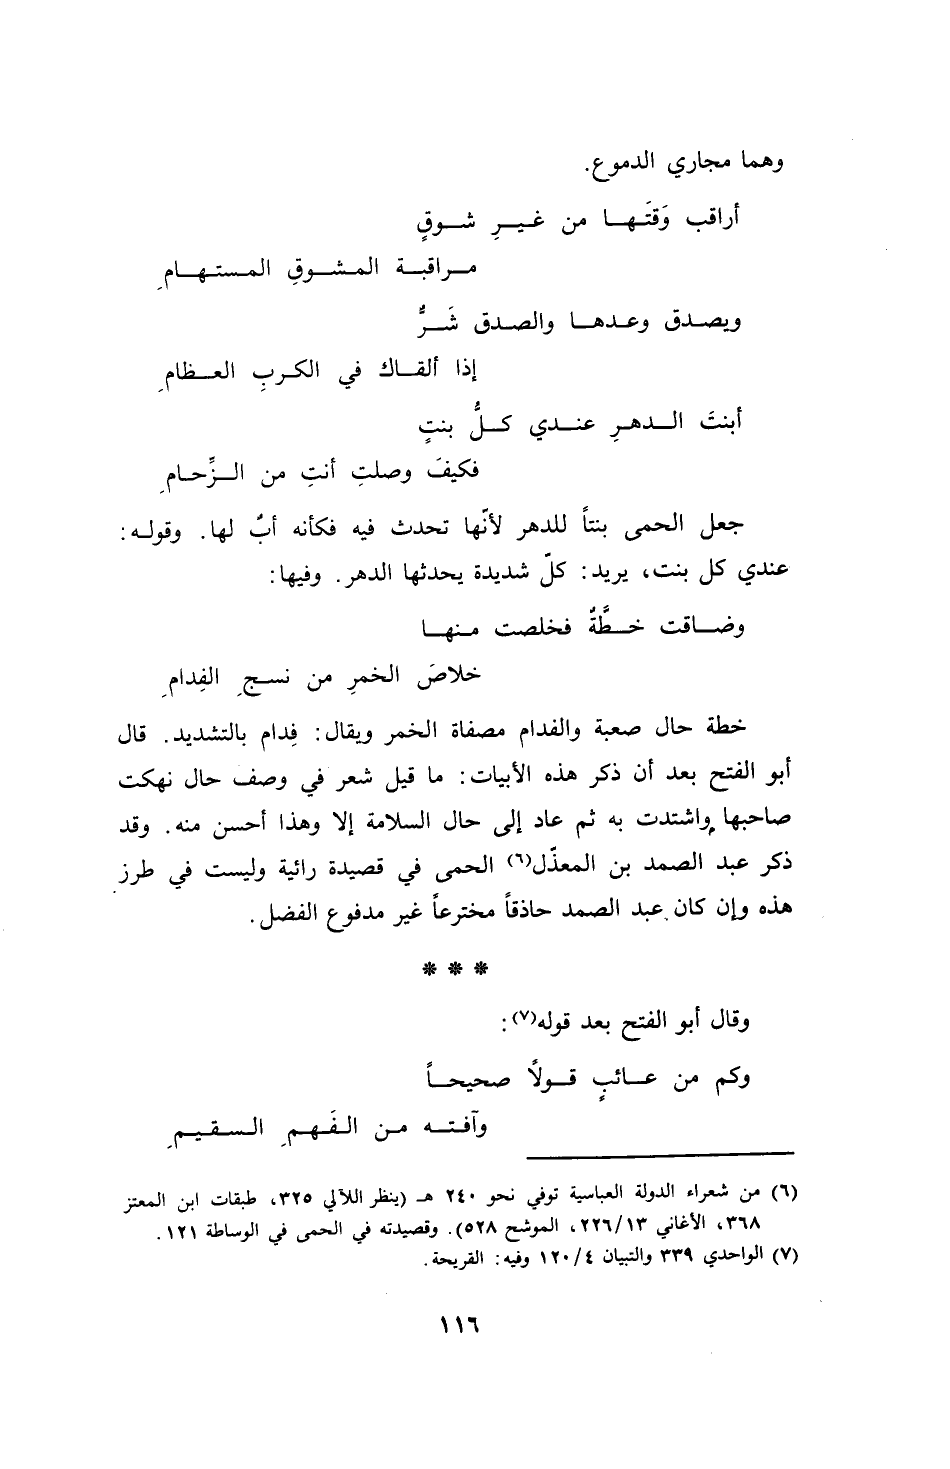 وهما مجاري الدموع.
أراقب وَقتَها من غيرِ شوقٍ
مراقبة المشوقِ المستهامِ
ويصدق وعدها والصدق شَرٌّ
إذا ألقاك في الكربِ العظامِ
أبنتَ الدهرِ عندي كلُّ بنتٍ
فكيفَ وصلتِ أنتِ من الزِّحامِ
جعل الحمى بنتاً للدهر لأنّها تحدث فيه فكأنه أبٌ لها. وقوله:
عندي كل بنت، يريد: كلّ شديدة يحدثها الدهر. وفيها:
وضاقت خطَّةٌ فخلصت منها
خلاصَ الخمرِ من نسجِ الفِدامِ
خطة حال صعبة والفدام مصفاة الخمر ويقال: فِدام بالتشديد. قال
أبو الفتح بعد أن ذكر هذه الأبيات: ما قيل شعر في وصف حال نهكت
صاحبها واشتدت به ثم عاد إلى حال السلامة إلا وهذا أحسن منه. وقد
ذكر عبد الصمد بن المعذّل(٦) الحمى في قصيدة رائية وليست في طرز
هذه وإن كان عبد الصمد حاذقاً مخترعاً غير مدفوع الفضل.
* * *
وقال أبو الفتح بعد قوله(٧):
وكم من عائبٍ قولاً صحيحاً
وآفته من الفَهمِ السقيمِ
(٦) من شعراء الدولة العباسية توفي نحو ٢٤٠ هـ (ينظر اللآلي ٣٢٥، طبقات ابن المعتز
٣٦٨، الأغاني ٢٢٦/١٣، الموشح ٥٢٨). وقصيدته في الحمى في الوساطة ١٢١.
(٧) الواحدي ٣٣٩ والتبيان ١٢٠/٤ وفيه: القريحة.
١١٦